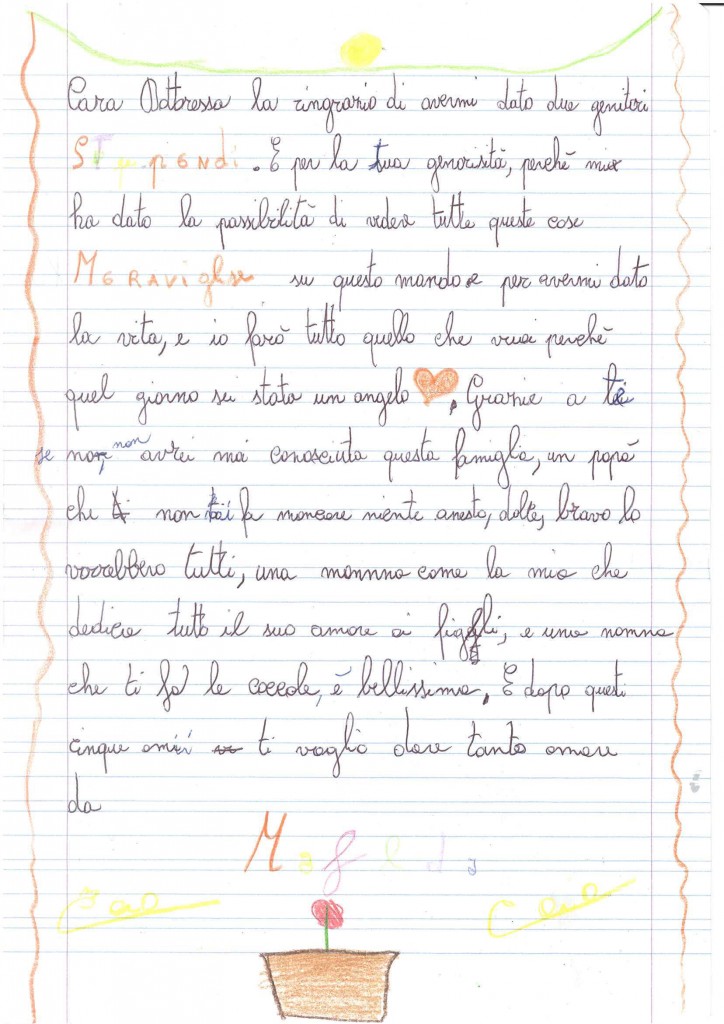 Cara Dottoressa la ringrazio di avermi dato due genitori
STupENdi. E per la tua genorisità, perché mi
ha dato la possibilità di vedere tutte queste cose
MERAVigliose su questo mondo e per avermi dato
la vita, e io farò tutto quello che vuoi perché
quel giorno sei stata un angelo. Grazie a te
se non avrei mai conosciuta questa famiglia, un papà
che non ti fa mancare niente onesto, dolte, bravo lo
vorrebbero tutti, una mamma come la mia che
dedica tutto il suo amore ai figli, e una nonna
che ti fà le coccole, è bellissima. E dopo questi
cinque anni ti voglio dare tanto amore
da